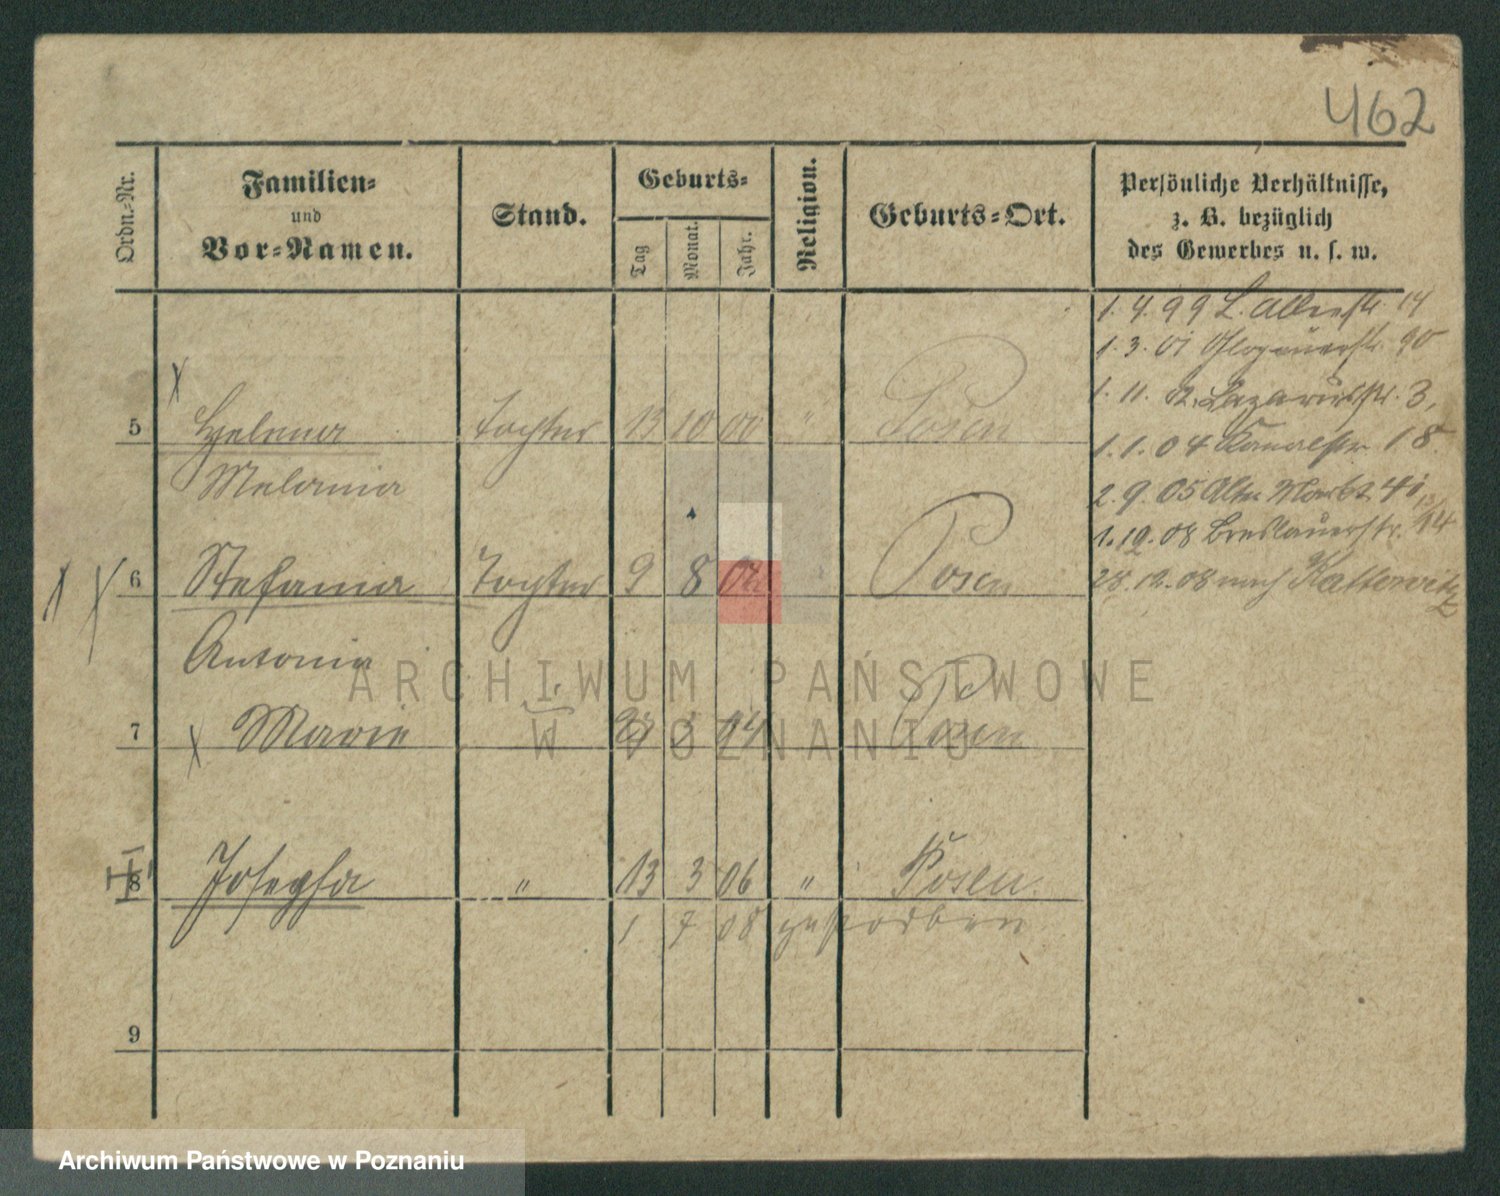 462
Ordn.-Nr.
Familien-
und
Vor-Namen.
Stand.
Geburts-
Tag
Monat.
Jahr.
Religion.
Geburts-Ort.
Persönliche Verhältnisse,
z. B. bezüglich
des Gewerbes u. s. w.
1. 4. 99 14
1. 3. 01 Glogauerstr. 90
1. 11. 02. Lazarusstr. 3,
1. 1. 04 Kanalstr. 18.
2. 9. 05 Alter Markt 41
1. 10. 08 Breslauerstr. 13/14
28. 12. 08 nach Kattowitz
5 Helena Tochter 13 10 00 " Posen
Melania
6 Stefania Tochter 9 8 02 Posen
Antonia
7 Marie 23 04 Posen
8 Josepha " 13 3 06 " Posen.
1 7 08 gestorben
9
ARCHIWUM PAŃSTWOWE
W POZNANIU
Archiwum Państwowe w Poznaniu